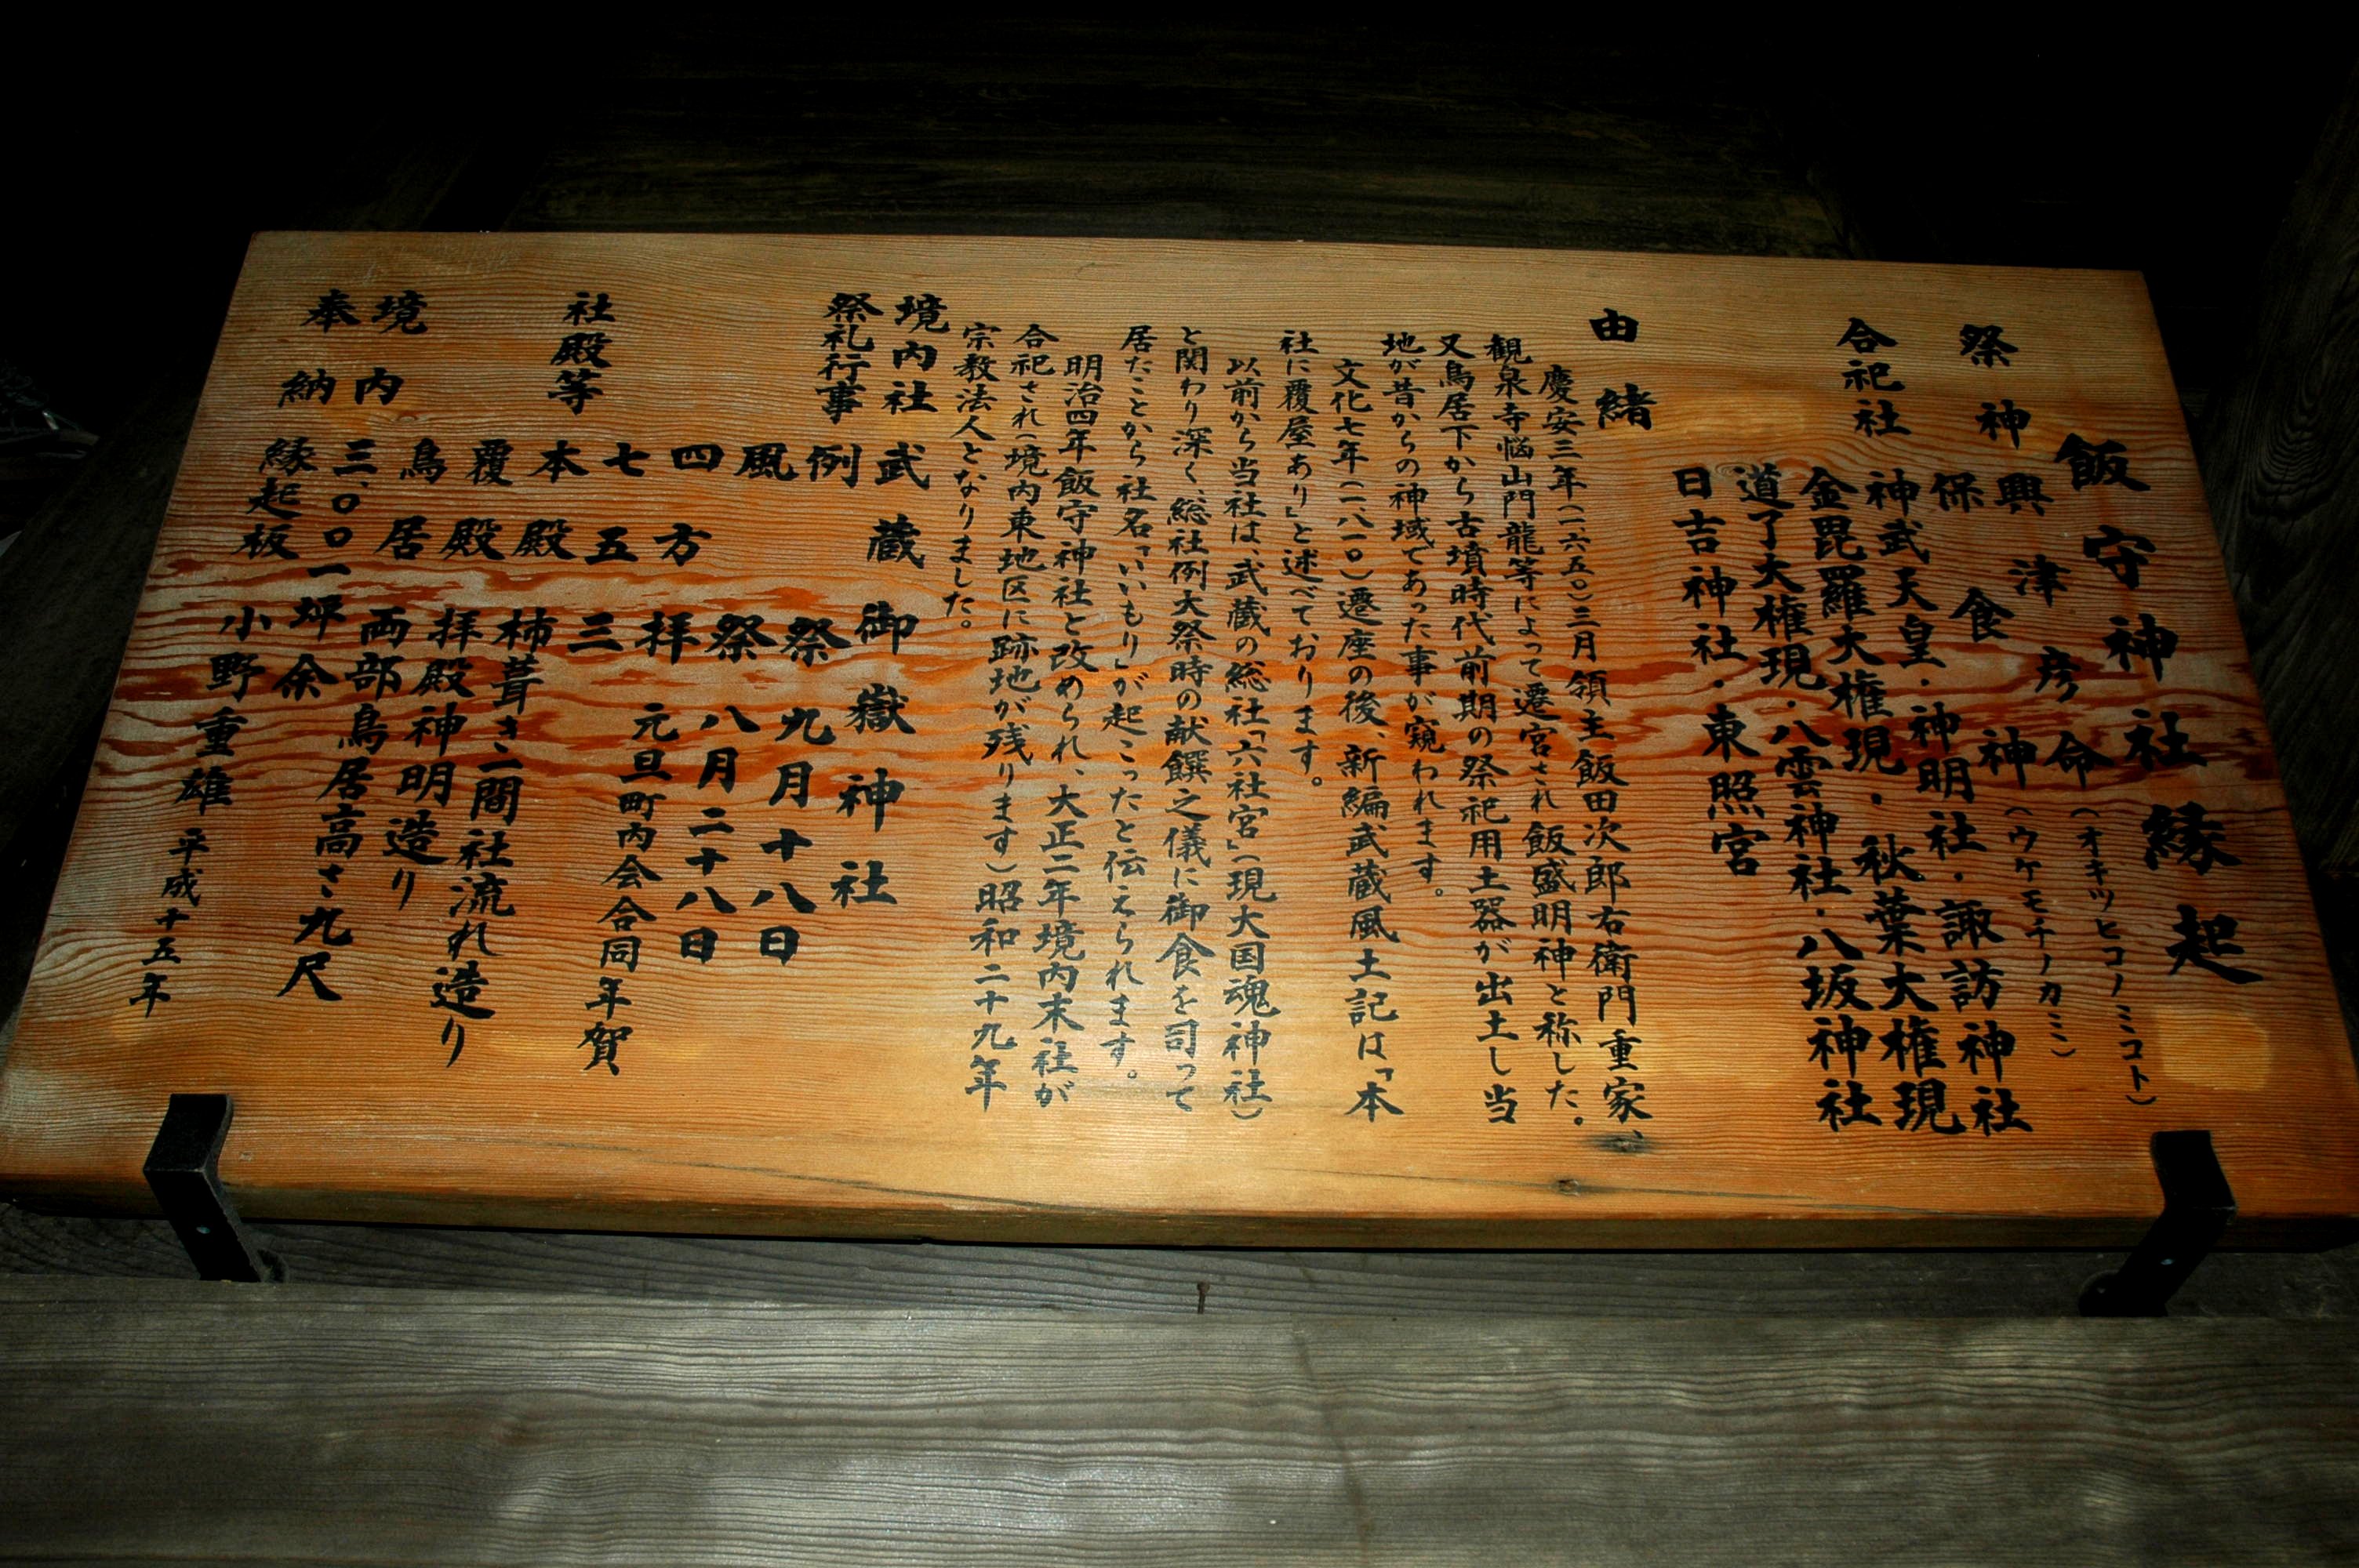 飯守神社縁起
祭神 興津彦命(オキツヒコノミコト)
保食神(ウケモチノカミ)
合祀社 神武天皇・神明社・諏訪神社
金毘羅大権現・秋葉大権現
道了大権現・八雲神社・八坂神社
日吉神社・東照宮
由緒
慶安三年(一、六五〇)三月領主飯田次郎右衛門重家、
観泉寺悩山門龍等によって遷宮され飯盛明神と称した。
又鳥居下から古墳時代前期の祭祀用土器が出土し当
地が昔からの神域であった事が窺われます。
文化七年(一、八一〇)遷座の後、新編武蔵風土記は「本
社に覆屋あり」と述べております。
以前から当社は、武蔵の総社「六社宮」(現大国魂神社)
と関わり深く、総社例大祭時の献饌之儀に御食を司って
居たことから社名「いいもり」が起こったと伝えられます。
明治四年飯守神社と改められ、大正二年境内末社が
合祀され(境内東地区に跡地が残ります)昭和二十九年
宗教法人となりました。
境内社 武蔵御嶽神社
祭礼行事 例祭 九月十八日
風祭 八月二十八日
四方拝 元旦町内会合同年賀
七五三
社殿等 本殿 柿葺き二間社流れ造り
覆殿 拝殿神明造り
鳥居 両部鳥居高さ九尺
境内 三、〇〇一坪余
奉納 縁起板 小野重雄 平成十五年